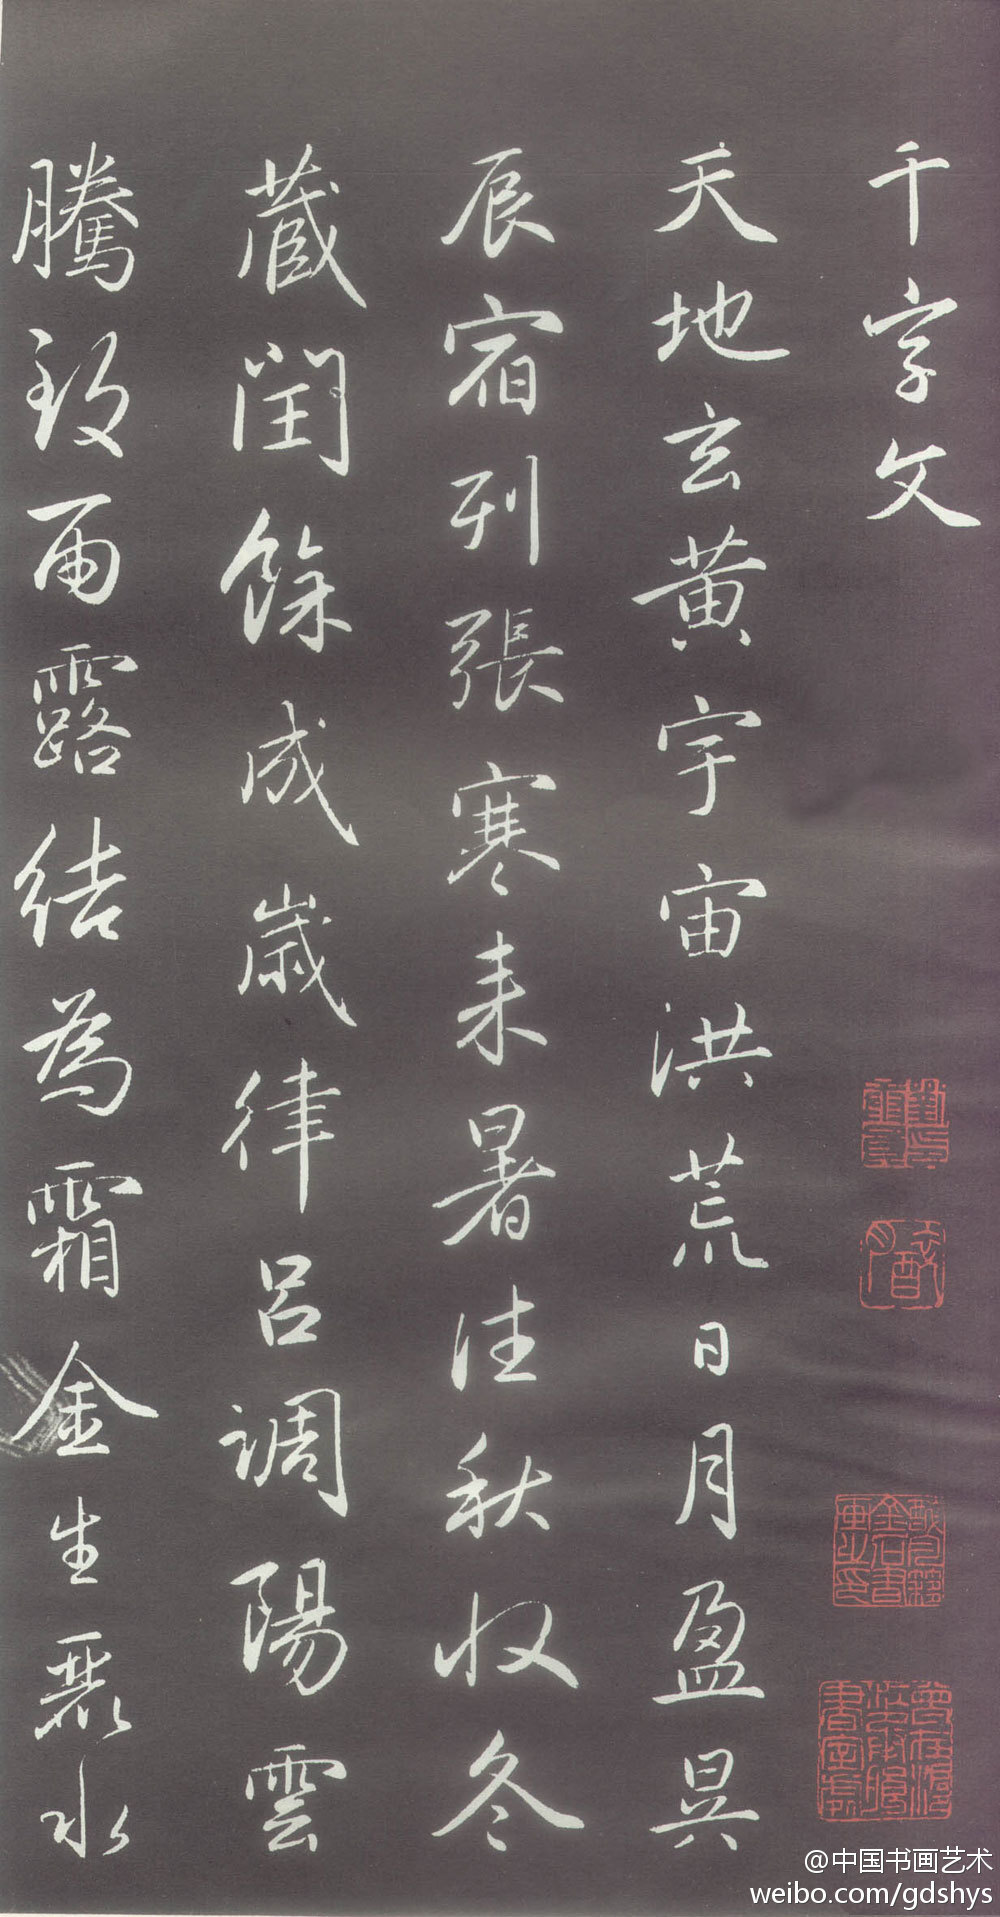 千字文
天地玄黃宇宙洪荒日月盈昃
辰宿列張寒来暑往秋收冬
蔵閏餘成歲律呂調陽雲
騰致雨露結為霜金生麗水
@中国书画艺术
weibo.com/gdshys